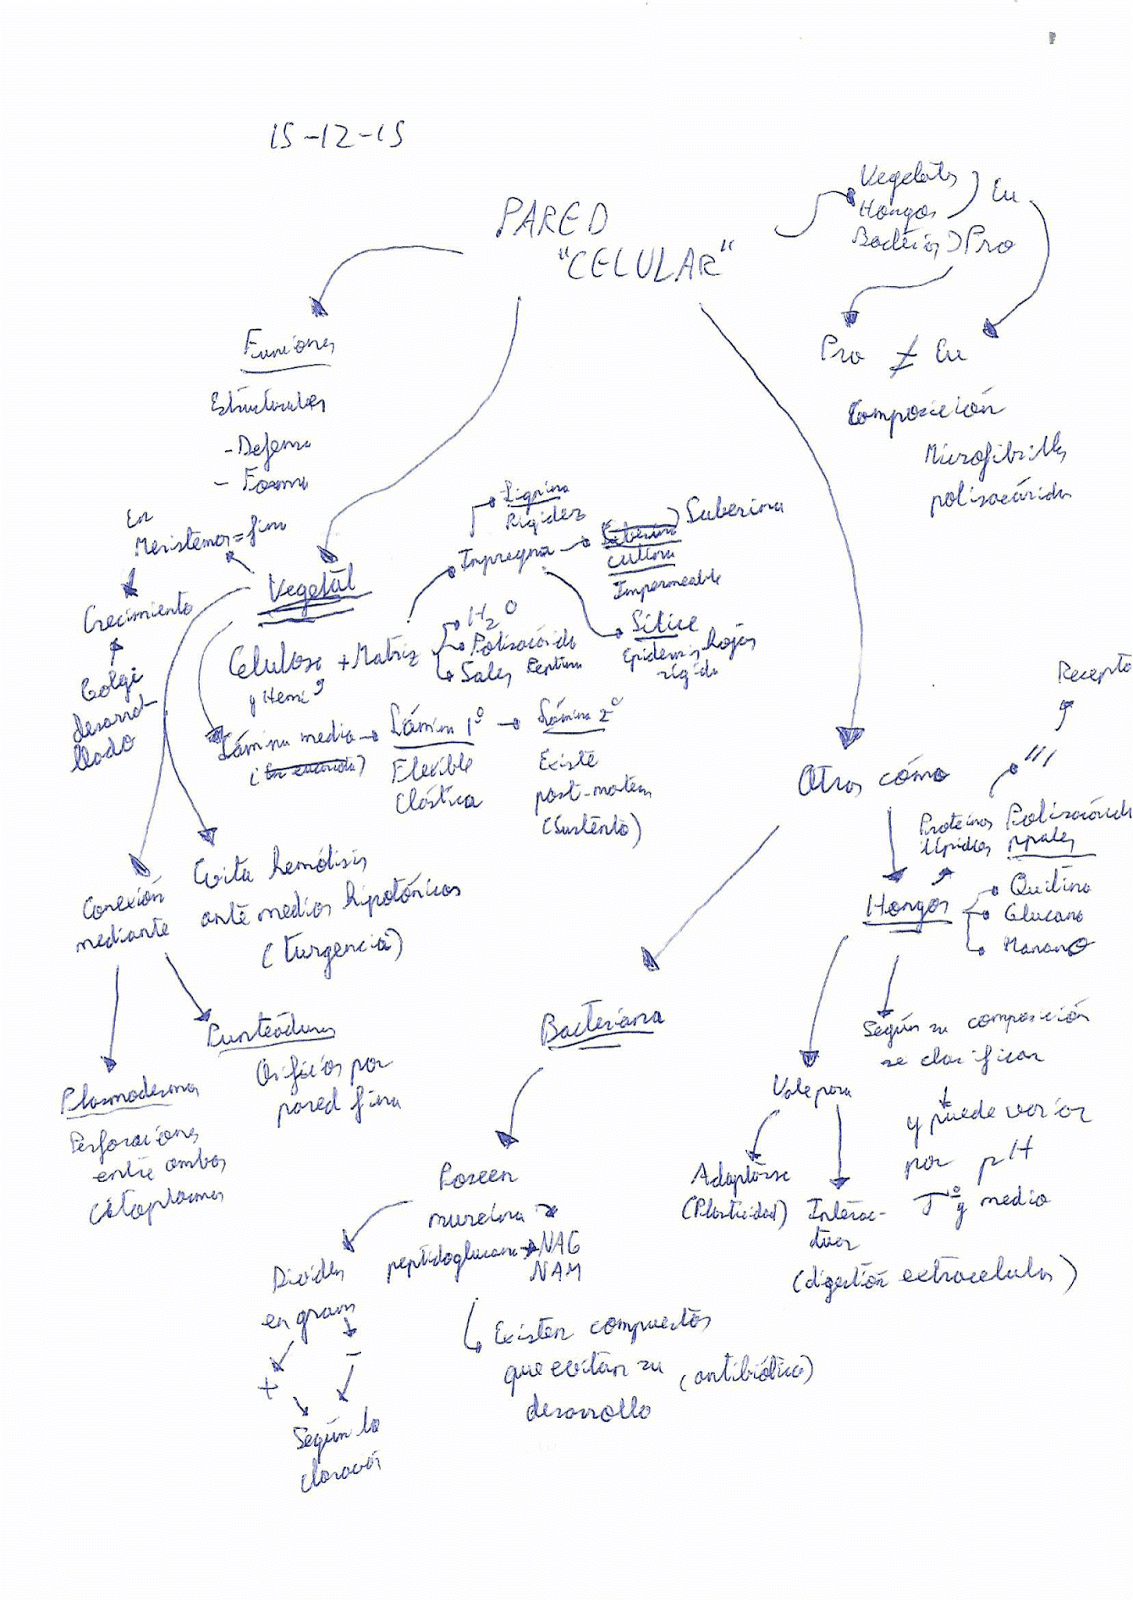 15-12-15
PARED
"CELULAR"
Vegetales
Hongos
Eu
Bacterias
Pro
Pro ≠ Eu
Composición
Microfibrillas
polisacáridos
Funciones
Estructurales
- Defensa
- Forma
En
Meristemos = fino
Crecimiento
Golgi
desarro-
llado
Vegetal
Celulosa + Matriz
y Hemi
H₂O
Polisacárido
Sales
Impregna
Lignina
Rigidez
Suberina
Cutina
Impermeable
Sílice
Epidermis hojas
rígida
Lámina media
Lámina 1º
Flexible
Elástica
Lámina 2º
Existe
(Sustento)
Evita hemólisis
ante medios hipotónicos
(turgencia)
Conexión
mediante
Plasmodesmos
Perforaciones
entre ambos
citoplasmas
Punteaduras
Orificios por
pared fina
Otros cómo
Hongos
Proteínas
lípidos
Polisacáridos
ppales
Quitina
Glucano
Manano
Según su composición
se clasifican
y puede variar
por pH
Tº y medio
Vale para
Adaptarse
(Plasticidad)
Interac-
tuar
(digestión extracelular)
Bacteriana
Poseen
mureina
peptidoglucano
NAG
NAM
Dividen
en gram
+
-
Según la
Existen compuestos
que evitan su
desarrollo
(antibiótico)